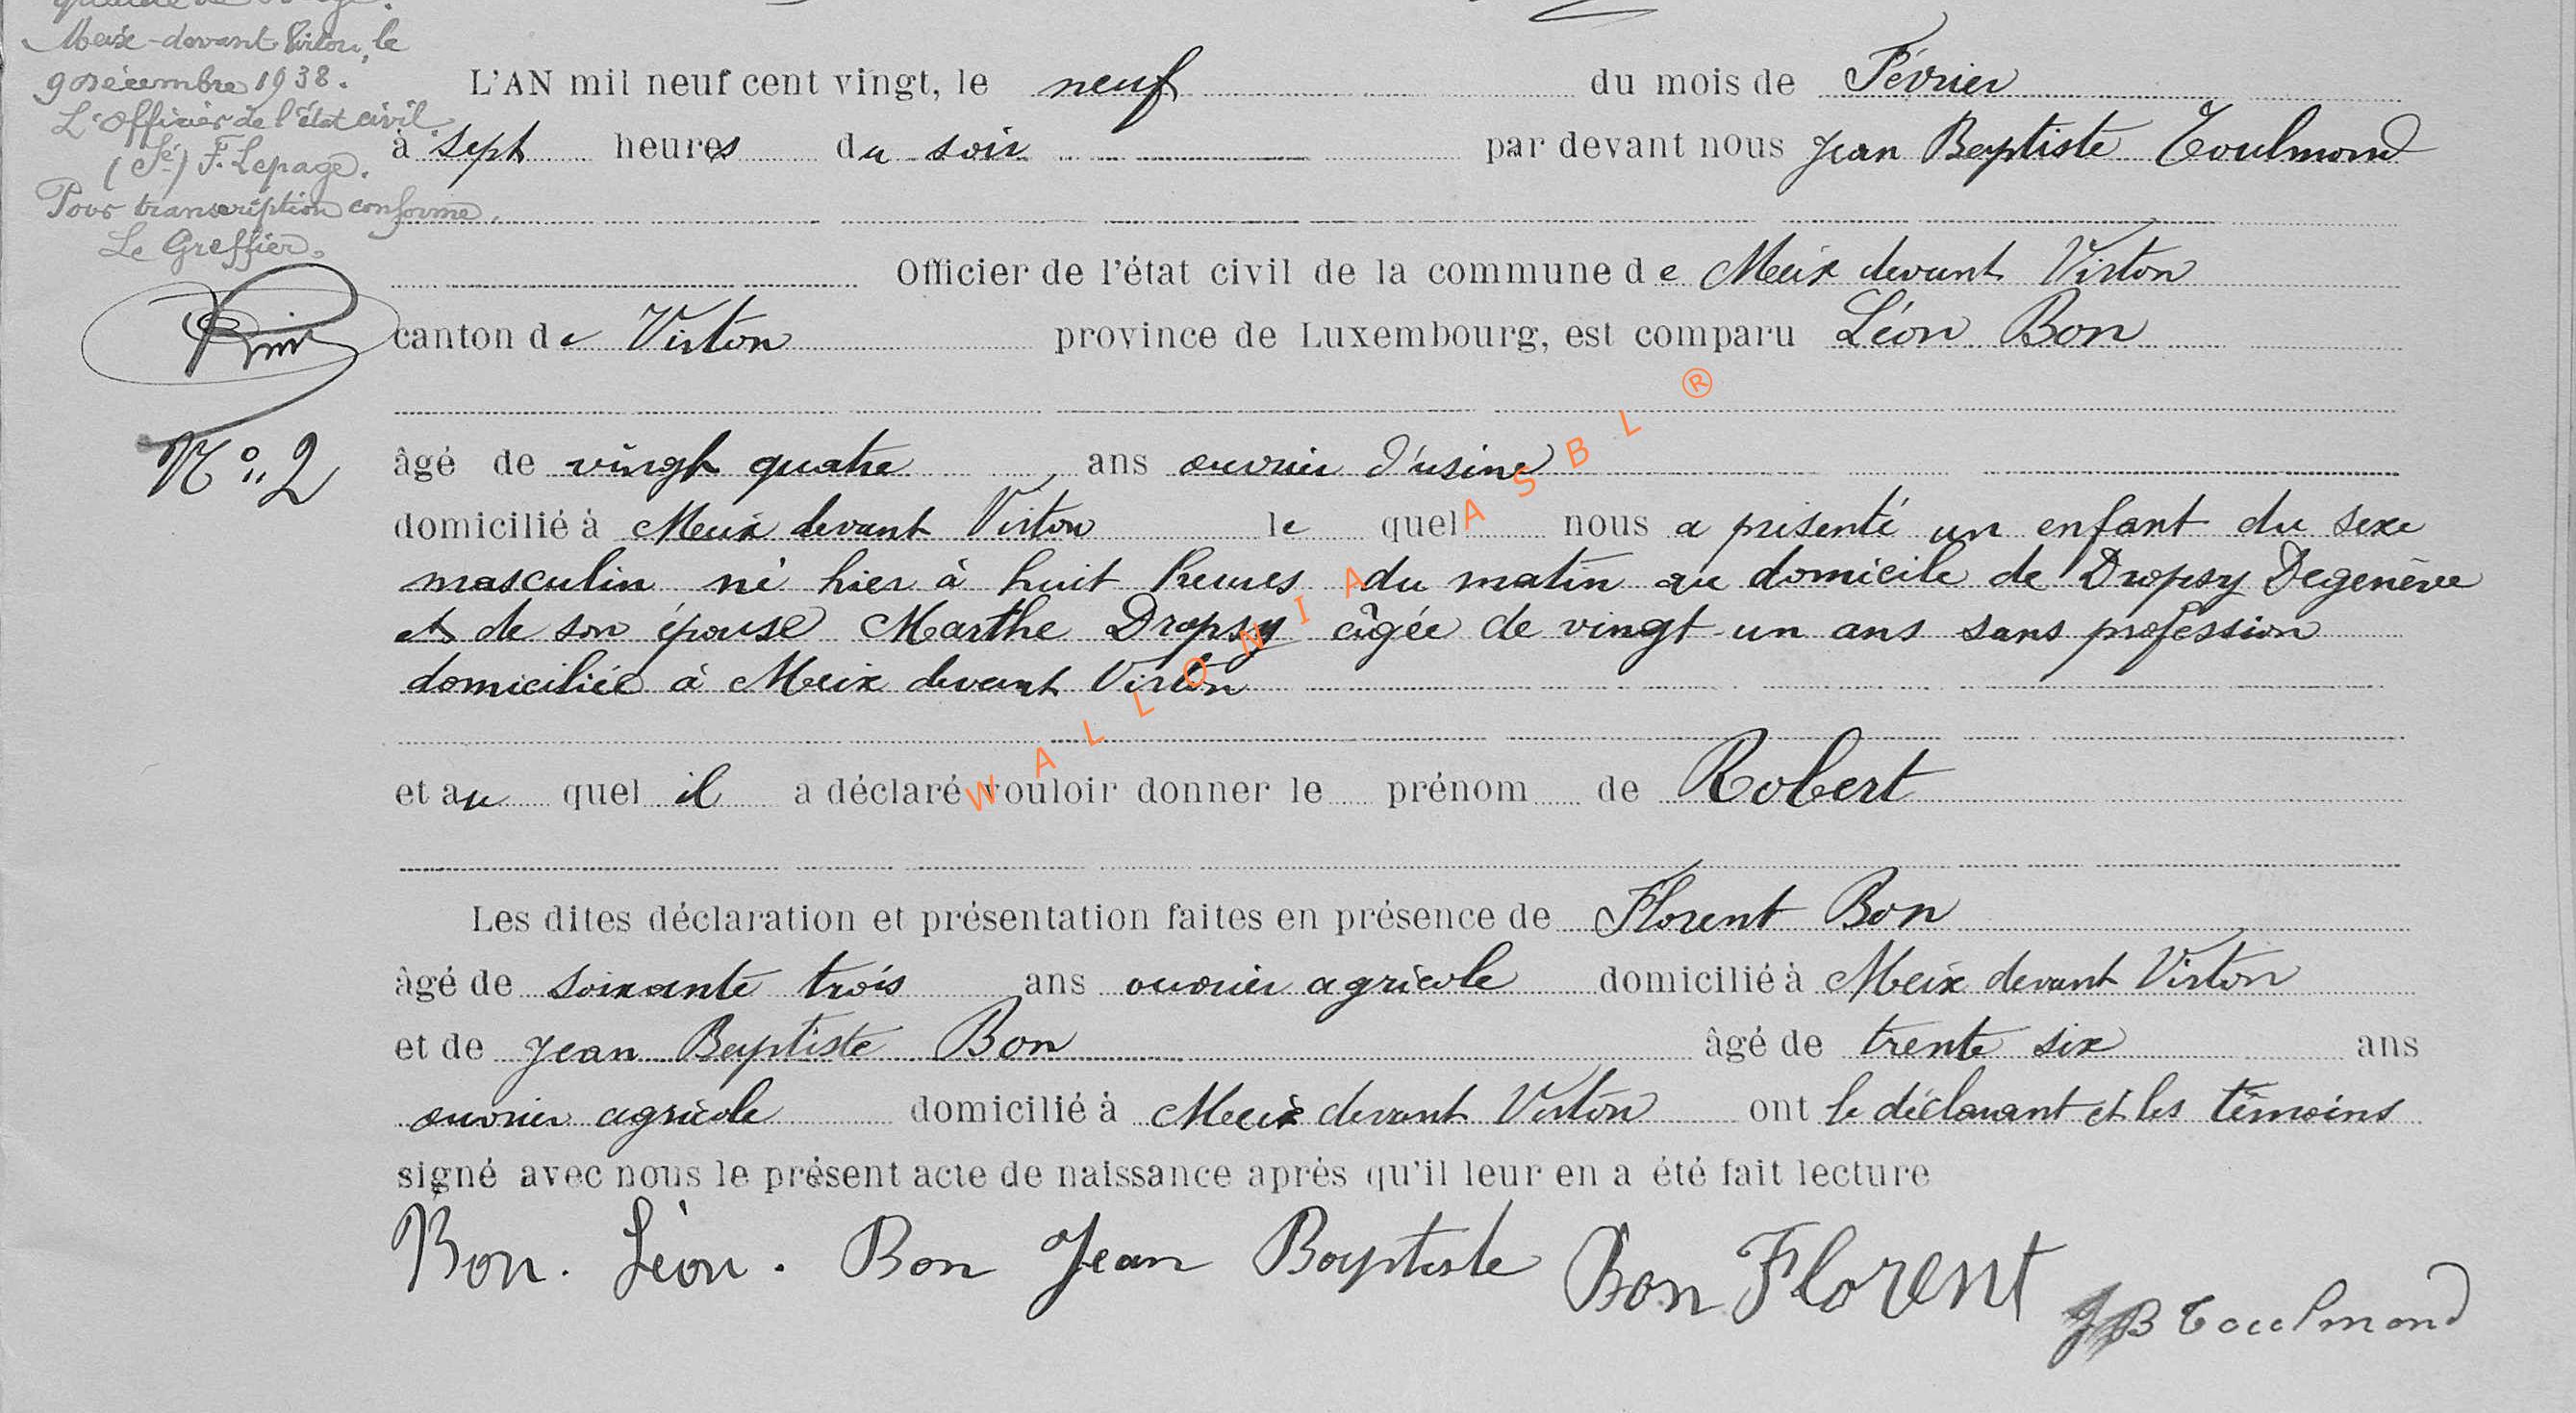 Meix-devant Virton, le
9 Décembre 1938.
L'Officier de l'état civil
(Sé) F. Lepage.
Pour transcription conforme,
Le Greffier.
N° 2
L'AN mil neuf cent vingt, le neuf du mois de Février
à sept heures du soir par devant nous Jean Baptiste Toulmond
Officier de l'état civil de la commune de Meix devant Virton
canton de Virton province de Luxembourg, est comparu Léon Bon
âgé de vingt quatre ans ouvrier d'usine
domicilié à Meix devant Virton le quel nous a présenté un enfant du sexe
masculin né hier à huit heures du matin au domicile de Dropsy Degenève
et de son épouse Marthe Dropsy âgée de vingt-un ans sans profession
domiciliée à Meix devant Virton
et au quel il a déclaré vouloir donner le prénom de Robert
Les dites déclaration et présentation faites en présence de Florent Bon
âgé de soixante trois ans ouvrier agricole domicilié à Meix devant Virton
et de Jean Baptiste Bon âgé de trente six ans
ouvrier agricole domicilié à Meix devant Virton ont le déclarant et les témoins
signé avec nous le présent acte de naissance après qu'il leur en a été fait lecture
Bon. Léon. Bon Jean Baptiste Bon Florent JB Toulmond
WALLONIA ASBL ®